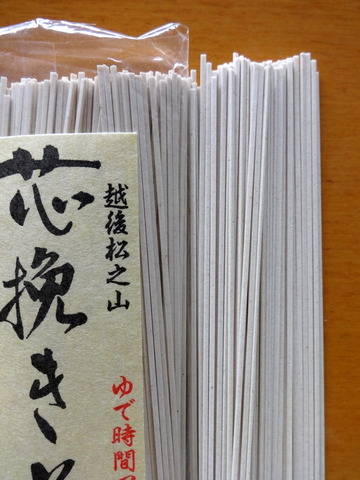 越後松之山
芯挽き
ゆで時間